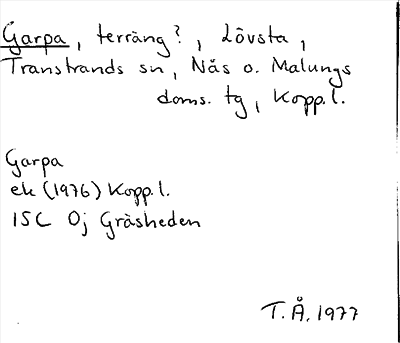 Garpa, terräng?, Lövsta,
Transtrands sn, Nås o. Malungs
doms. tg, Kopp.l.
Garpa
ek (1976) Kopp.l.
15C 0j Gräsheden
T.Å. 1977